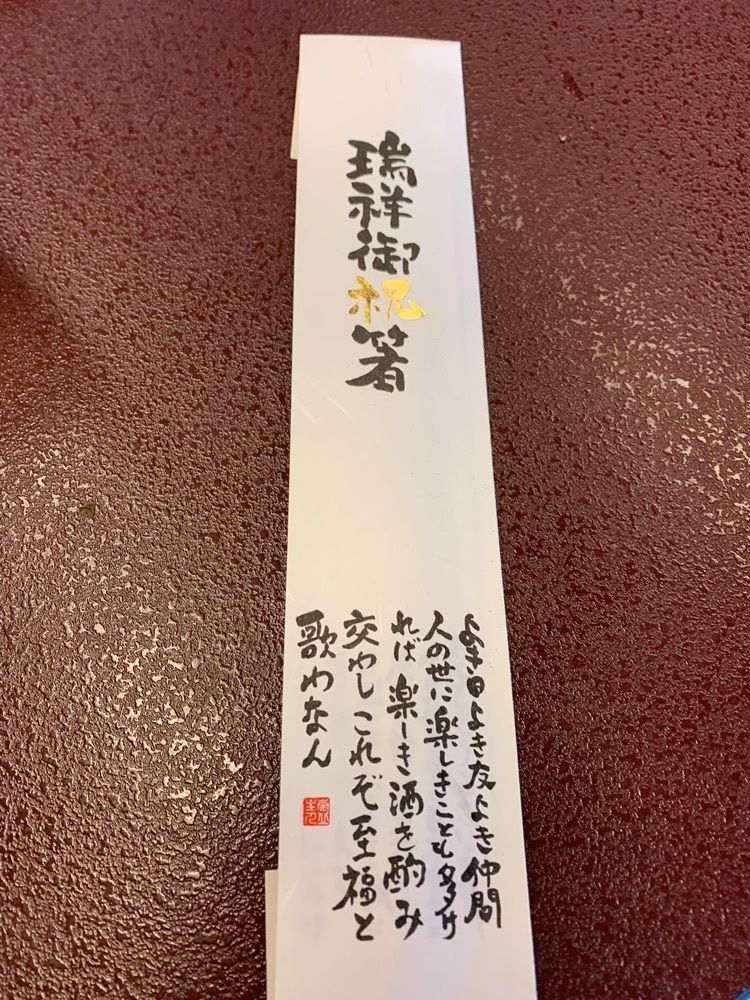 瑞祥御祝箸
よき日よき友よき仲間
人の世に楽しきことも多け
れば 楽しき酒を酌み
交わし これぞ至福と
歌わなん